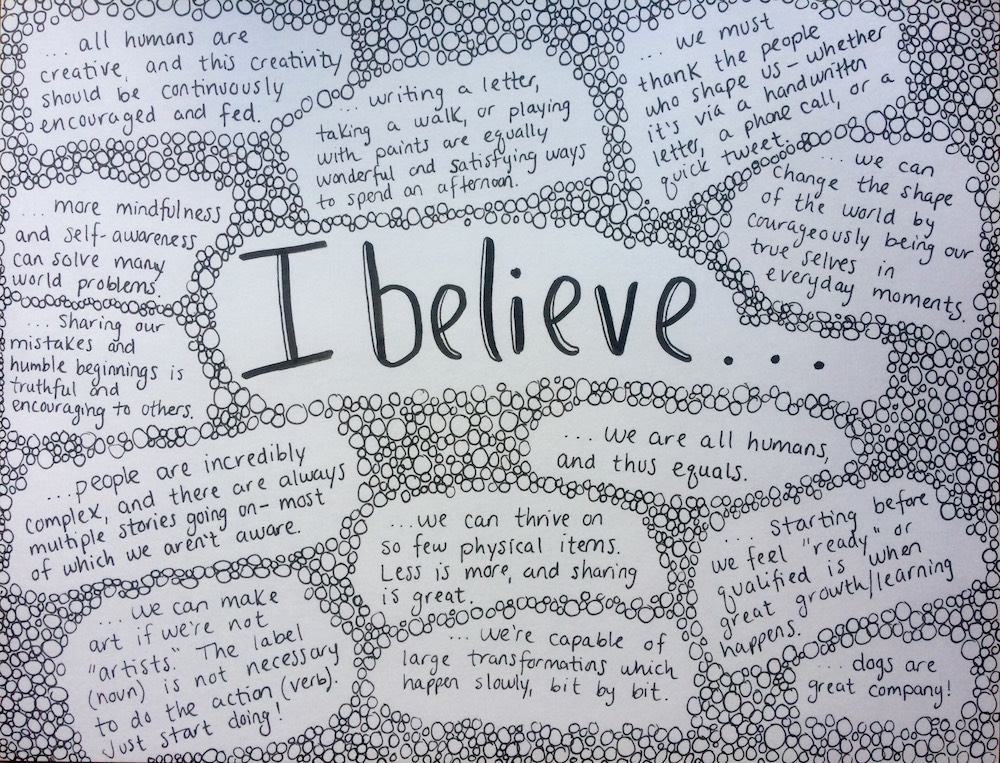 ... all humans are
creative, and this creativity
should be continuously
encouraged and fed.
... writing a letter,
taking a walk, or playing
with paints are equally
wonderful and satisfying ways
to spend an afternoon.
... we must
thank the people
who shape us - whether
it's via a handwritten
letter, a phone call, or a
quick tweet.
... we can
change the shape
of the world by
courageously being our
true selves in
everyday moments.
... more mindfulness
and self-awareness
can solve many
world problems.
I believe...
... sharing our
mistakes and
humble beginnings is
truthful and
encouraging to others.
... we are all humans,
and thus equals.
...people are incredibly
complex, and there are always
multiple stories going on - most
of which we aren't aware.
...we can thrive on
so few physical items.
Less is more, and sharing
is great.
... starting before
we feel "ready" or
qualified is when
great growth/learning
happens.
...we can make
art if we're not
"artists." The label
(noun) is not necessary
to do the action (verb).
Just start doing!
... we're capable of
large transformatins which
happen slowly, bit by bit.
... dogs are
great company!